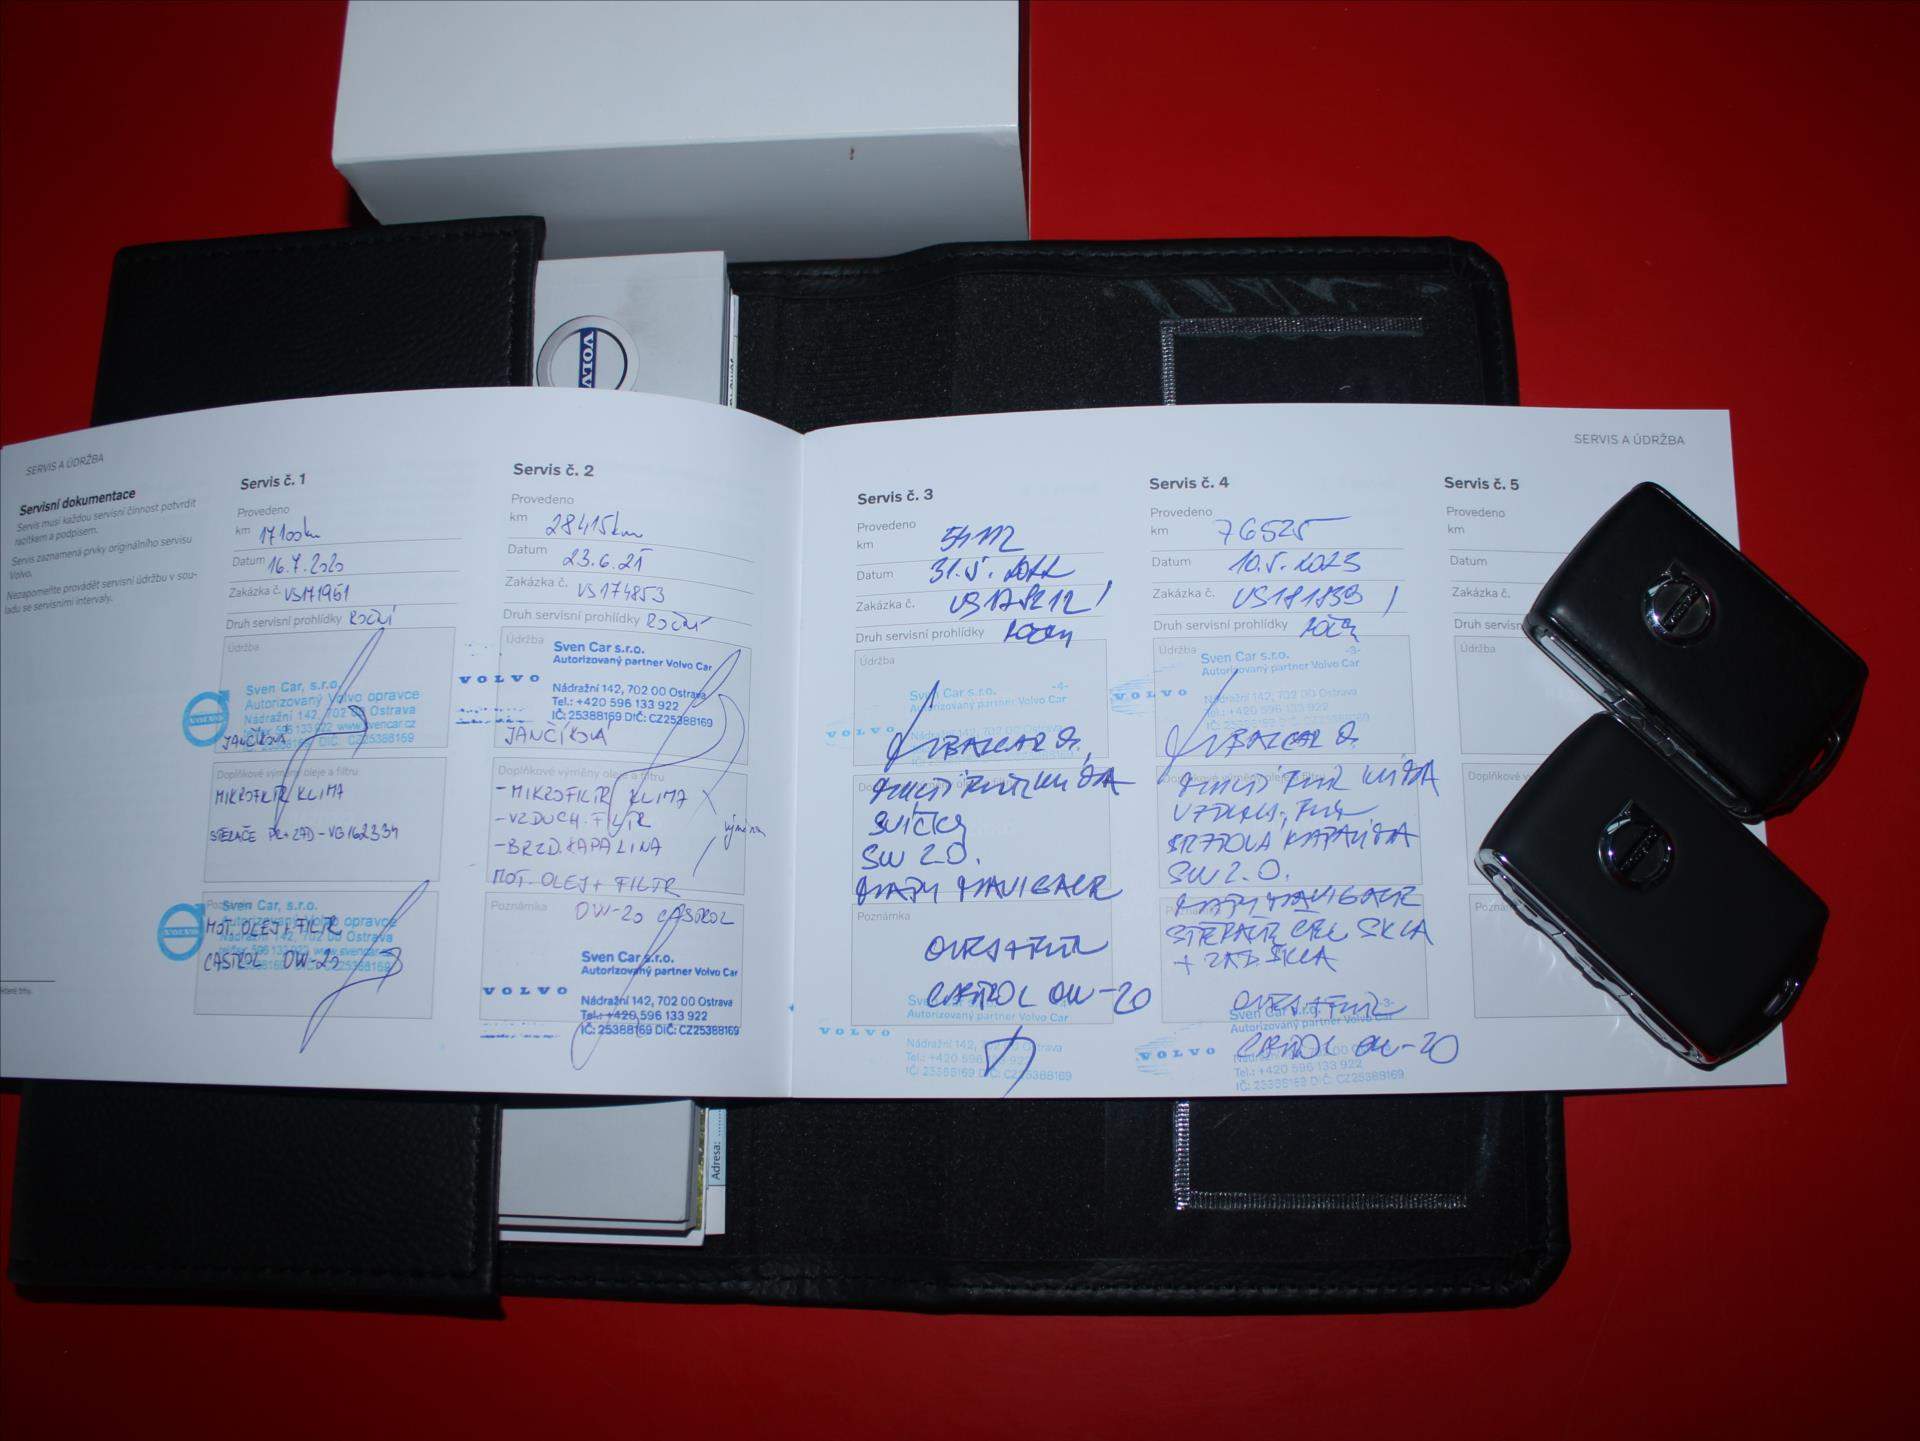 VOLVO
SERVIS A ÚDRŽBA
Servisní dokumentace
Servis musí každou servisní činnost potvrdit
razítkem a podpisem.
Servis zaznamená prvky originálního servisu
Volvo.
Nezapomeňte provádět servisní údržbu v sou-
ladu se servisními intervaly.
Servis č. 1
Provedeno
km 17100km
Datum 16.7.2020
Zakázka č. VS171961
Druh servisní prohlídky ROČNÍ
Údržba
Sven Car, s.r.o.
Autorizovaný Volvo opravce
Nádražní 142, 702 00 Ostrava
596 133 922 www.svencar.cz
DIČ: CZ25388169
VOLVO
JANČÍKOVÁ
Doplňkové výměny oleje a filtru
MIKROFILTR KLIMA
STĚRAČE PŘ+ZAD-VG162334
Sven Car, s.r.o.
Autorizovaný Volvo opravce
Nádražní 142, 702 00 Ostrava
596 133 922 www.svencar.cz
VOLVO
MOT. OLEJ+FILTR
CASTROL 0W-20
Servis č. 2
Provedeno
km 28415km
Datum 23.6.21
Zakázka č. VS174853
Druh servisní prohlídky ROČNÍ
Údržba
Sven Car s.r.o.
Autorizovaný partner Volvo Car
VOLVO
Nádražní 142, 702 00 Ostrava
Tel.: +420 596 133 922
IČ: 25388169 DIČ: CZ25388169
JANČÍKOVÁ
Doplňkové výměny oleje a filtru
-MIKROFILTR KLIMA
-VZDUCH. FILTR
-BRZD. KAPALINA
MOT. OLEJ+ FILTR
Poznámka
0W-20 CASTROL
Sven Car s.r.o.
Autorizovaný partner Volvo Car
VOLVO
Nádražní 142, 702 00 Ostrava
Tel.: +420 596 133 922
IČ: 25388169 DIČ: CZ25388169
SERVIS A ÚDRŽBA
Servis č. 3
Provedeno
km
Datum 31.5.2022
Zakázka č.
Druh servisní prohlídky
Údržba
Sven Car s.r.o. -4-
Autorizovaný partner Volvo Car
VOLVO
SVÍČKY
SW 2.0.
MAPY NAVIGACE
Poznámka
OLEJ+FILTR
CASTROL 0W-20
Autorizovaný partner Volvo Car
VOLVO
Nádražní 142,
Tel.: +420 596 133 922
IČ: 25388169 DIČ: CZ25388169
Servis č. 4
Provedeno
km 76525
Datum 10.5.2023
Zakázka č. VS181839
Druh servisní prohlídky
Údržba -3-
Sven Car s.r.o.
Autorizovaný partner Volvo Car
VOLVO
BRZDOVÁ KAPALINA
SW 2.0.
MAPY NAVIGACE
+ ZAD. SKLA
OLEJ+FILTR
Sven Car s.r.o. -3-
Autorizovaný partner Volvo Car
VOLVO
CASTROL 0W-20
Tel.: +420 596 133 922
IČ: 25388169 DIČ: CZ25388169
Servis č. 5
Provedeno
km
Datum
Zakázka č.
Údržba
Adresa: